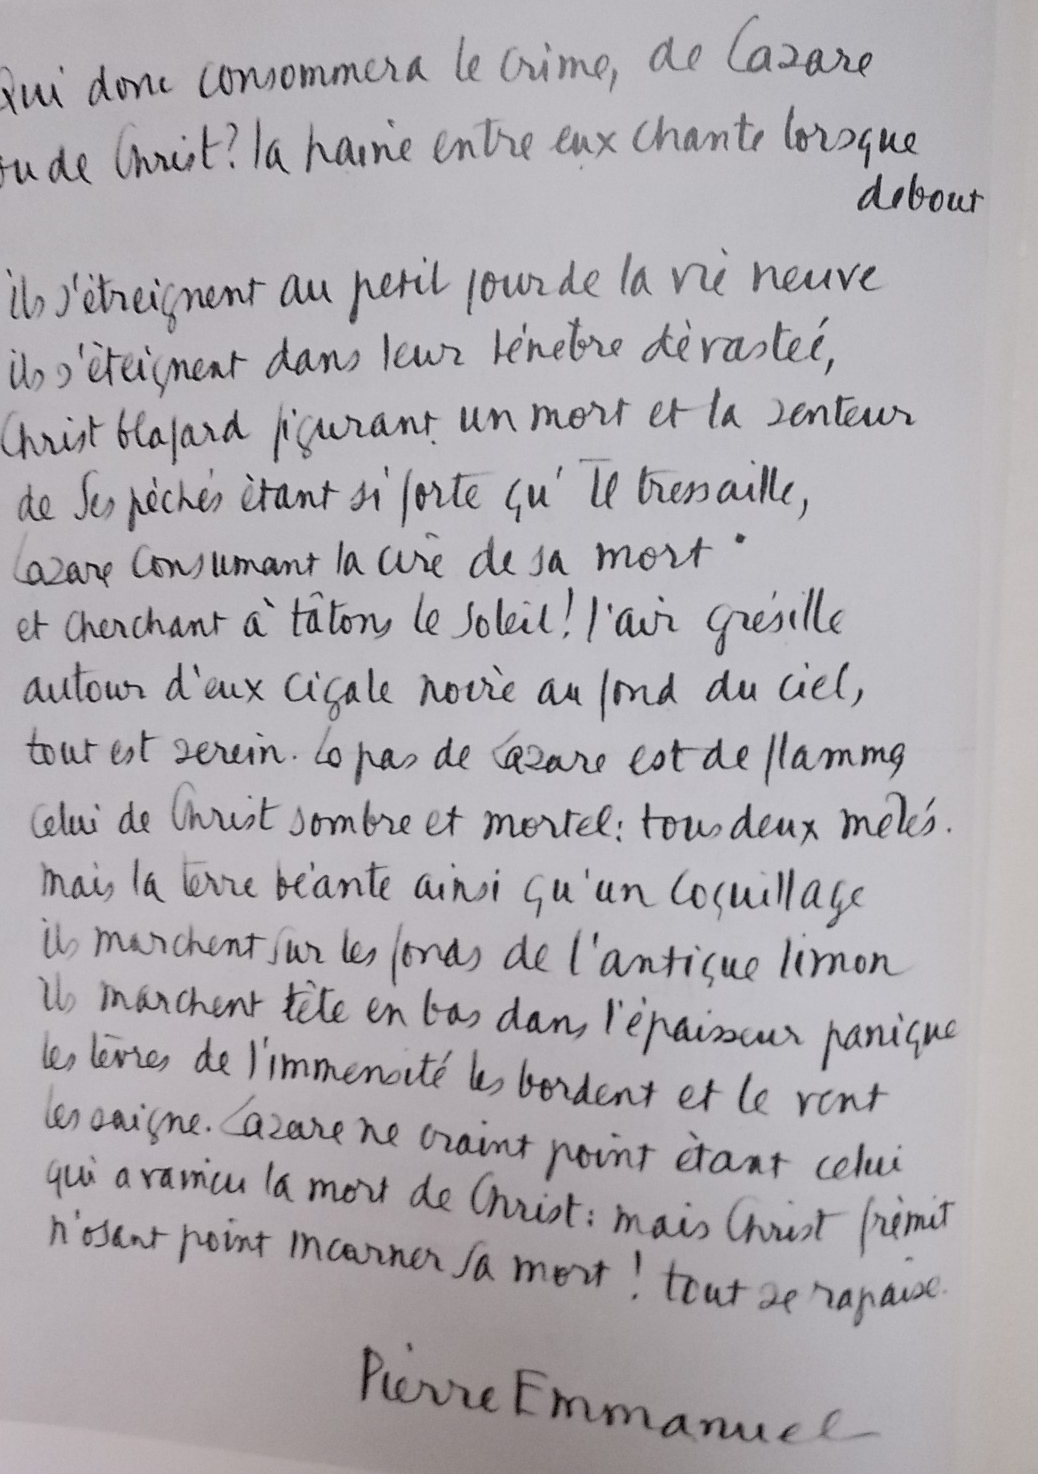 Qui donc consommera le crime, de Lazare
ou de Christ? la haine entre eux chante lorsque
debout
ils s'étreignent au petit jour de la vie neuve
ils s'éteignent dans leur ténèbre dévastée,
Christ blafard figurant un mort et la senteur
de Ses péchés étant si forte qu'Il tressaille,
Lazare consumant la cire de sa mort
et cherchant à tâtons le soleil! l'air grésille
autour d'eux cigale noire au fond du ciel,
tout est serein. Le pas de Lazare est de flamme
celui de Christ sombre et mortel: tous deux mêlés.
mais la terre béante ainsi qu'un coquillage
ils marchent sur les fonds de l'antique limon
Ils marchent tête en bas dans l'épaisseur panique
les lèvres de l'immensité les bordent et le vent
les saigne. Lazare ne craint point étant celui
qui a vaincu la mort de Christ: mais Christ frémit
n'osant point incarner Sa mort! tout se rapaise.
Pierre Emmanuel